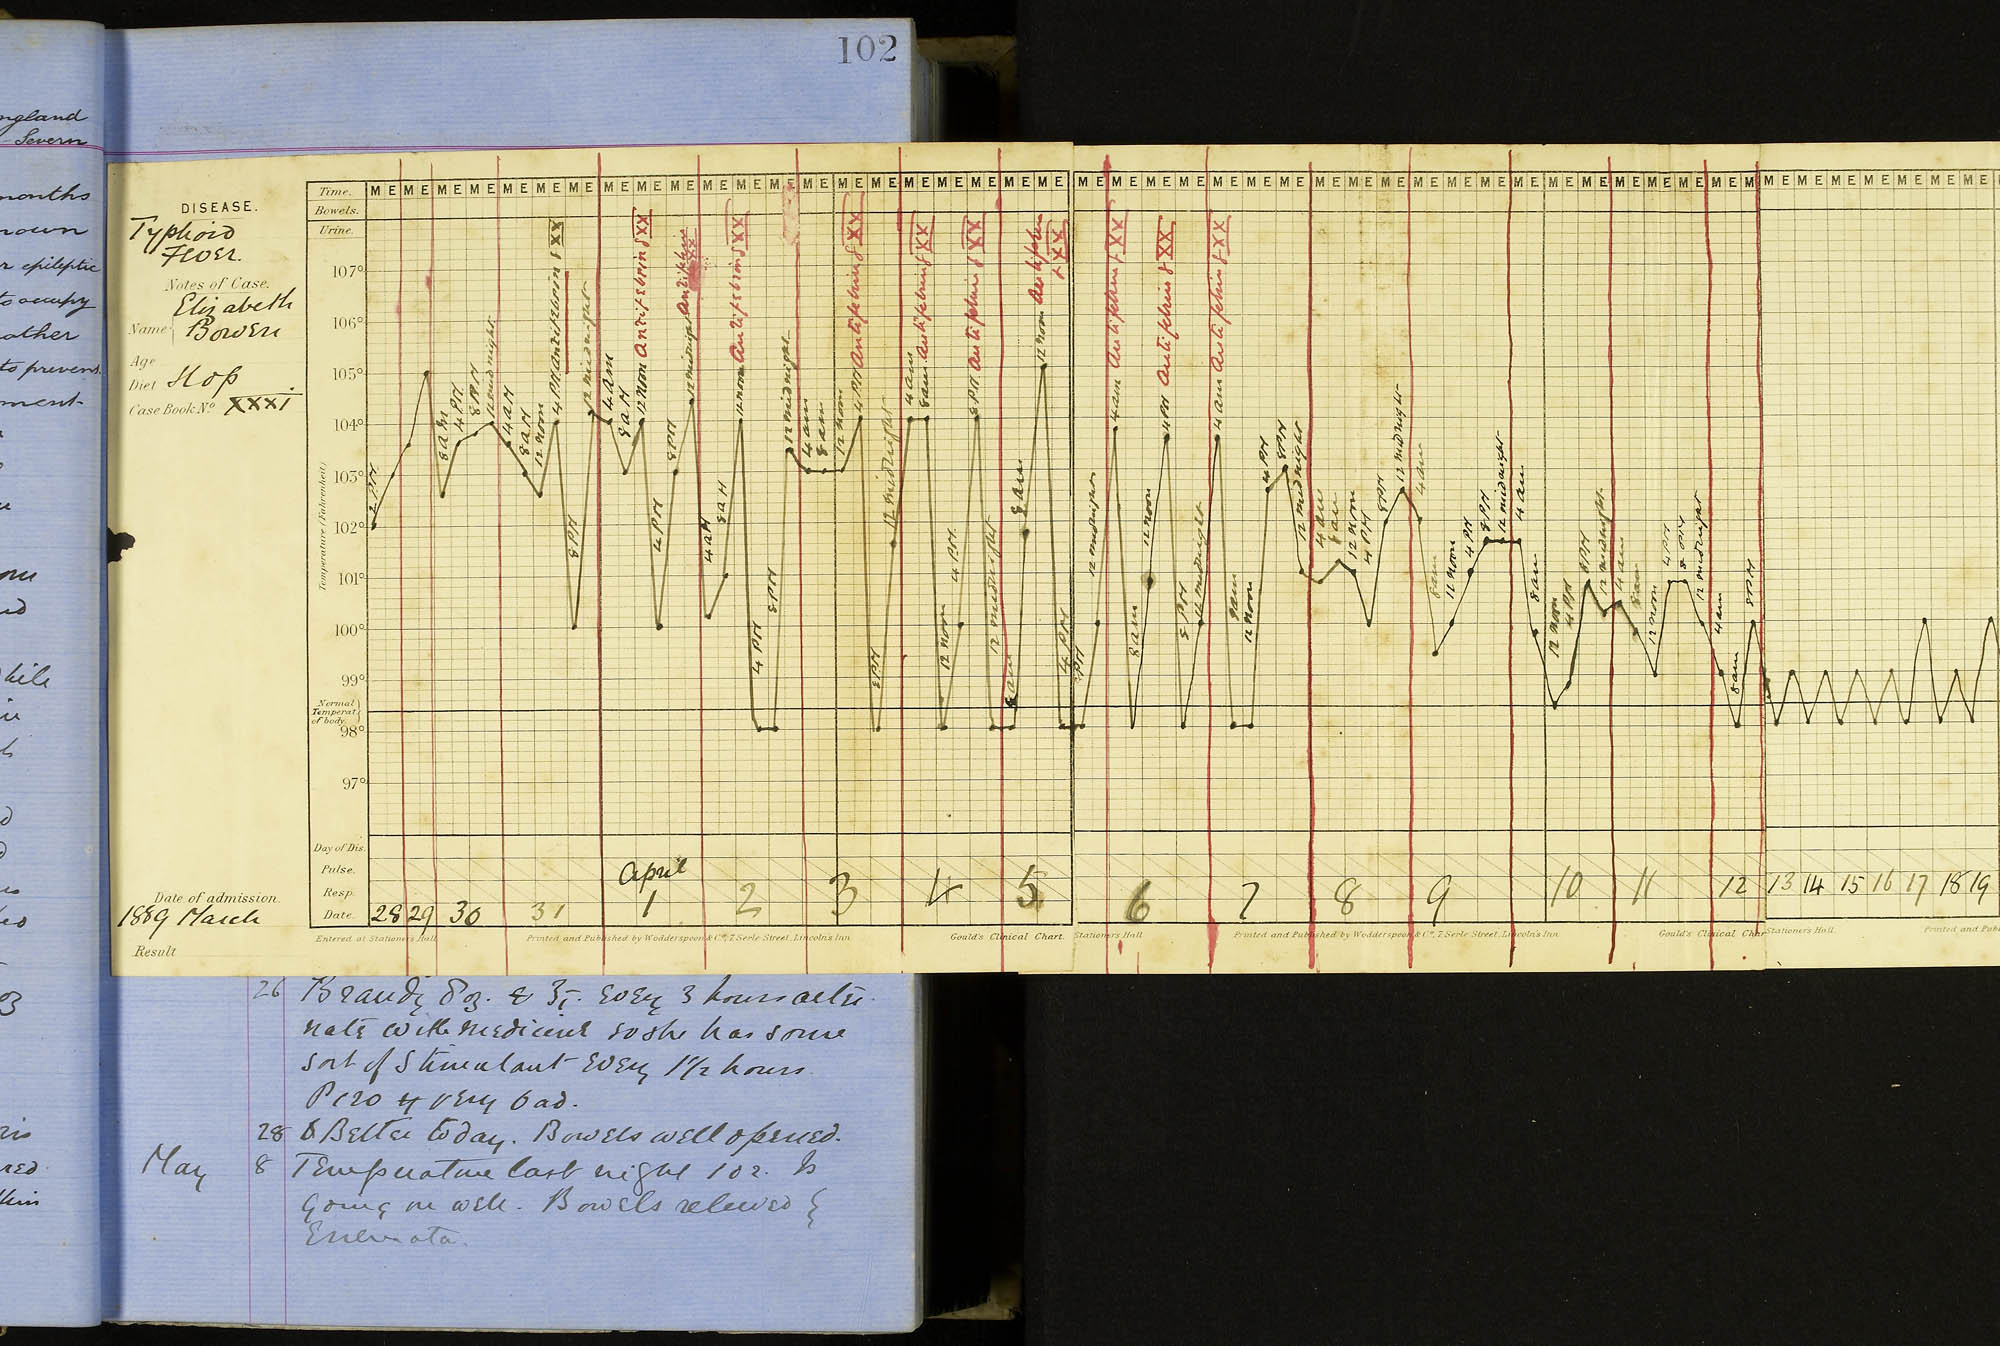 102
ngland
Severn
months
nown
r epileptic
to occupy
other
to prevent
ment
DISEASE.
Typhoid
Fever.
Notes of Case.
Name Elizabeth
Bowen
Age
Diet Slop
Case Book No. XXXI
Date of admission.
1889 March
Result
Time. M E M E M E M E M E M E M E M E M E M E M E M E M E M E M E M E M E M E M E M E M E
Bowels.
Urine.
Temperature (Fahrenheit)
107°
106°
105°
104°
103°
102°
101°
100°
99°
Normal
Temperat.
of body.
98°
97°
2 PM
8 am 4 PM 8 PM 12 midnight
4 am 8 am 12 noon 4 PM Antifebrin XX 8 PM 12 midnight
4 am 8 am 12 noon Antifebrin XX 4 PM 8 PM 12 midnight
4 am 8 am 12 noon Antifebrin XX 4 PM 8 PM 12 midnight
4 am 8 am 12 noon 4 PM Antifebrin XX 8 PM 12 midnight
4 am 8 am Antifebrin XX 12 noon 4 PM 8 PM Antifebrin XX 12 midnight
8 am 12 noon Antifebrin XX 4 PM 12 midnight
4 am Antifebrin XX 8 am 12 noon 4 PM Antifebrin XX 8 PM 12 midnight
4 am Antifebrin XX 8 am 12 noon 4 PM 8 PM 12 midnight
4 am 8 am 12 noon 4 PM 8 PM 12 midnight
4 am 8 am 12 noon 4 PM 8 PM 12 midnight
4 am 8 am 12 noon 4 PM 8 PM 12 midnight
4 am 8 am 12 noon 4 PM 8 PM 12 midnight
4 am 8 am 8 PM
Day of Dis.
Pulse.
Resp.
Date.
April
28 29 30 31 1 2 3 4 5 6 7 8 9 10 11 12 13 14 15 16 17 18 19
Entered at Stationers Hall. Printed and Published by Wodderspoon & Co., 7 Serle Street, Lincoln's Inn Gould's Clinical Chart.
Stationers Hall. Printed and Published by Wodderspoon & Co., 7 Serle Street, Lincoln's Inn. Gould's Clinical Char
Stationers Hall. Printed and Publ
26 Brandy 8oz. every 3 hours alter
nate with medicine so she has some
sort of Stimulant every 1½ hours
P 120 & very bad.
28 Better today. Bowels well opened.
May 8 Temperature last night 102. Is
going on well. Bowels relieved
Enemata.